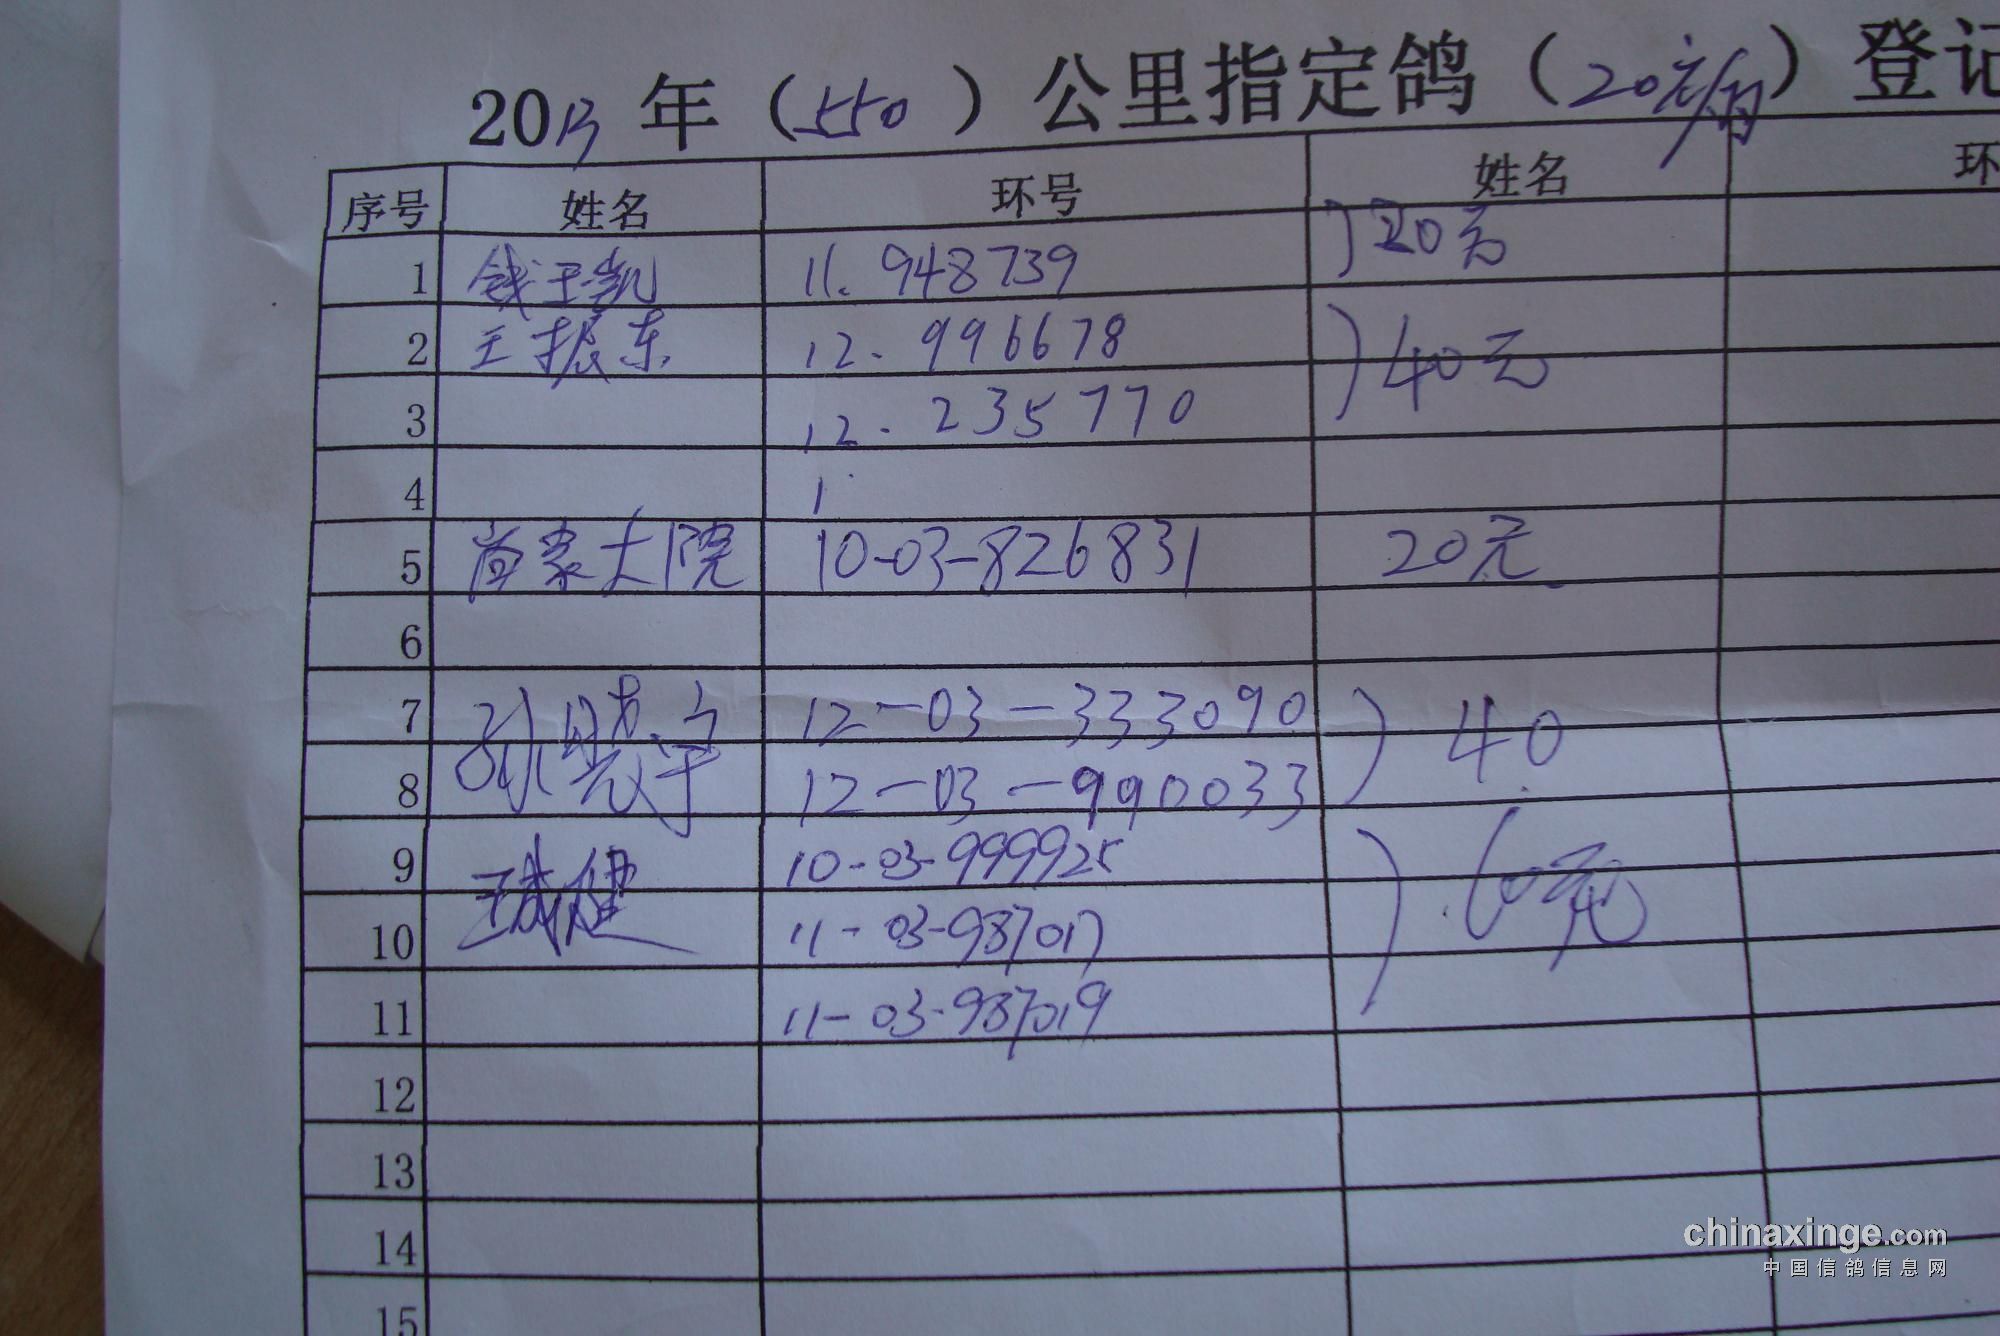 2013年（550）公里指定鸽（20元/羽）登记
序号 姓名 环号 姓名 环
1 钱玉凯 11.948739 20元
2 王振东 12.996678 40元
3 12.235770
4 1
5 首家大院 10-03-826831 20元
6
7 孙晓宇 12-03-333090 40
8 12-03-990033
9 王成健 10-03-999925 60元
10 11-03-987017
11 11-03-987019
12
13
14
15
chinaxinge.com
中国信鸽信息网